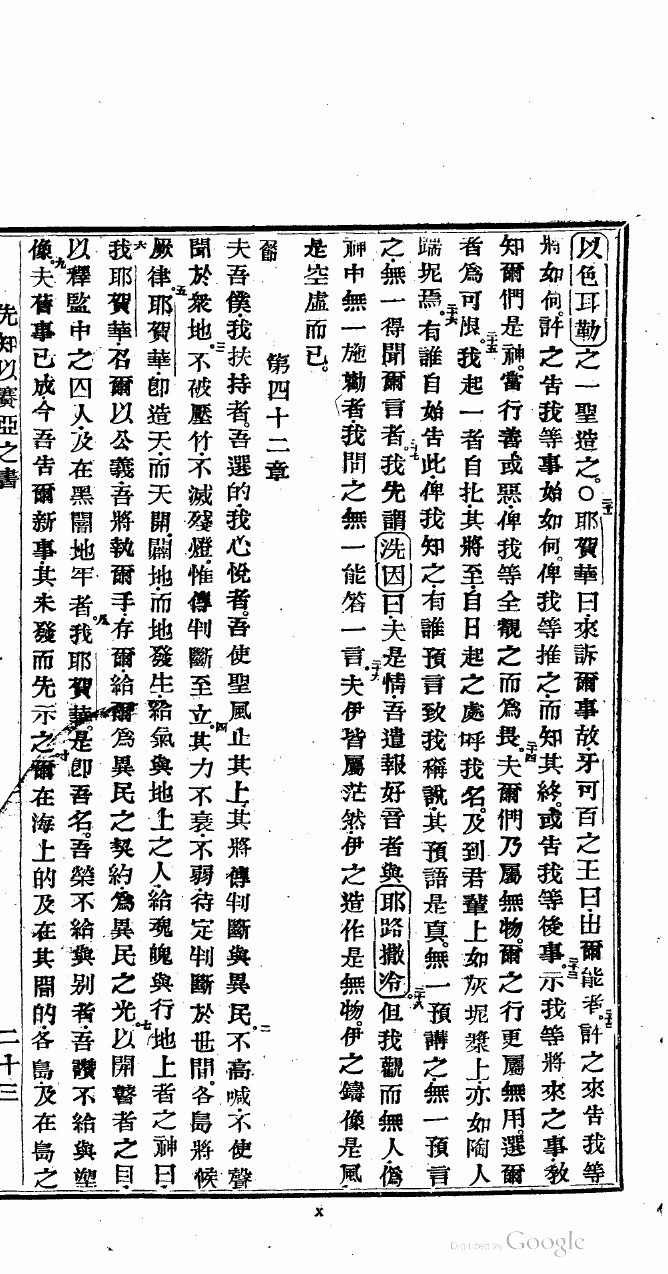 以色耳勒之一聖造之。○二十一耶賀華曰來訴爾事故牙可百之王曰出爾能者二十二許之來告我等
將如何許之告我等事始如何俾我等推之而知其終或告我等後事二十三示我等將來之事教
知爾們是神當行善或惡俾我等全覩之而為畏二十四夫爾們乃屬無物爾之行更屬無用選爾
者為可恨二十五我起一者自北其將至自日起之處呼我名及到君輩上如灰坭漿上亦如陶人
踹坭焉二十六有誰自始告此俾我知之有誰預言致我稱說其預語是真無一預講之無一預言
之無一得聞爾言者二十七我先謂洗因曰夫是情吾遣報好音者與耶路撒冷二十八但我觀而無人偽
神中無一施勸者我問之無一能答一言二十九夫伊皆屬茫然伊之造作是無物伊之鑄像是風
是空虛而已
第四十二章
夫吾僕我扶持者吾選的我心悅者吾使聖風止其上其將傳判斷與異民二不高喊不使聲
聞於衆地三不破壓竹不滅殘燈惟傳判斷至立四其力不衰不弱待定判斷於世間各島將候
厥律五耶賀華卽造天而天開闢地而地發生給氣與地上之人給魂魄與行地上者之神曰
六我耶賀華召爾以公義吾將執爾手存爾給爾為異民之契約為異民之光七以開瞽者之目
以釋監中之囚人及在黑闇地牢者八我耶賀華是卽吾名吾榮不給與別者吾讚不給與塑
像九夫舊事已成今吾告爾新事其未發而先示之十爾在海上的及在其間的各島及在島之
先知以賽亞之書
二十三
x
Digitized by Google